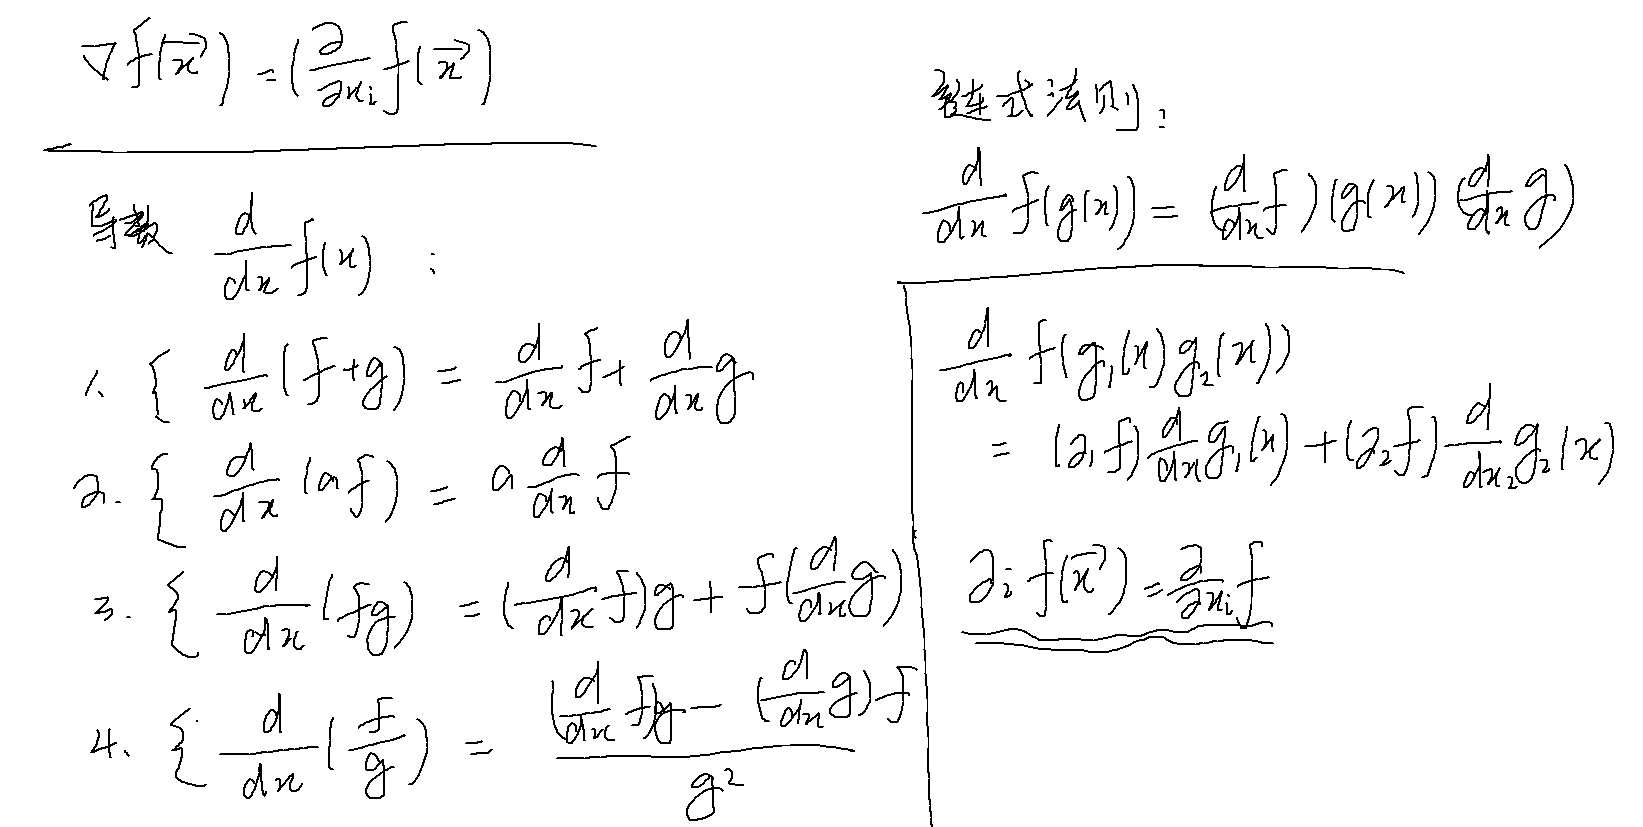 ∇f(x⃗) = (∂/∂xᵢ f(x⃗))
导数 d/dx f(x) :
1. { d/dx (f+g) = d/dx f + d/dx g
2. { d/dx (af) = a d/dx f
3. { d/dx (fg) = (d/dx f)g + f(d/dx g)
4. { d/dx (f/g) = ((d/dx f)g − (d/dx g)f)/g²
链式法则:
d/dx f(g(x)) = (d/dx f)(g(x)) (d/dx g)
d/dx f(g₁(x) g₂(x))
= (∂₁f) d/dx g₁(x) + (∂₂f) d/dx₂ g₂(x)
∂ᵢ f(x⃗) = ∂/∂xᵢ f